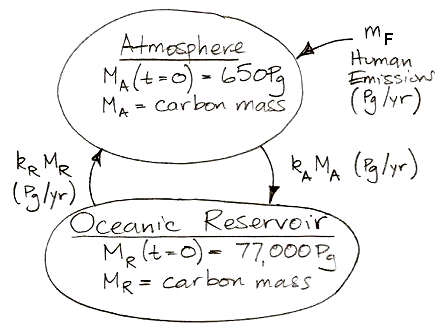 Atmosphere
M_A(t=0) = 650Pg
M_A = carbon mass
m_F
Human
Emissions
(Pg/yr)
k_R M_R
(Pg/yr)
k_A M_A (Pg/yr)
Oceanic Reservoir
M_R(t=0) = 77,000Pg
M_R = carbon mass